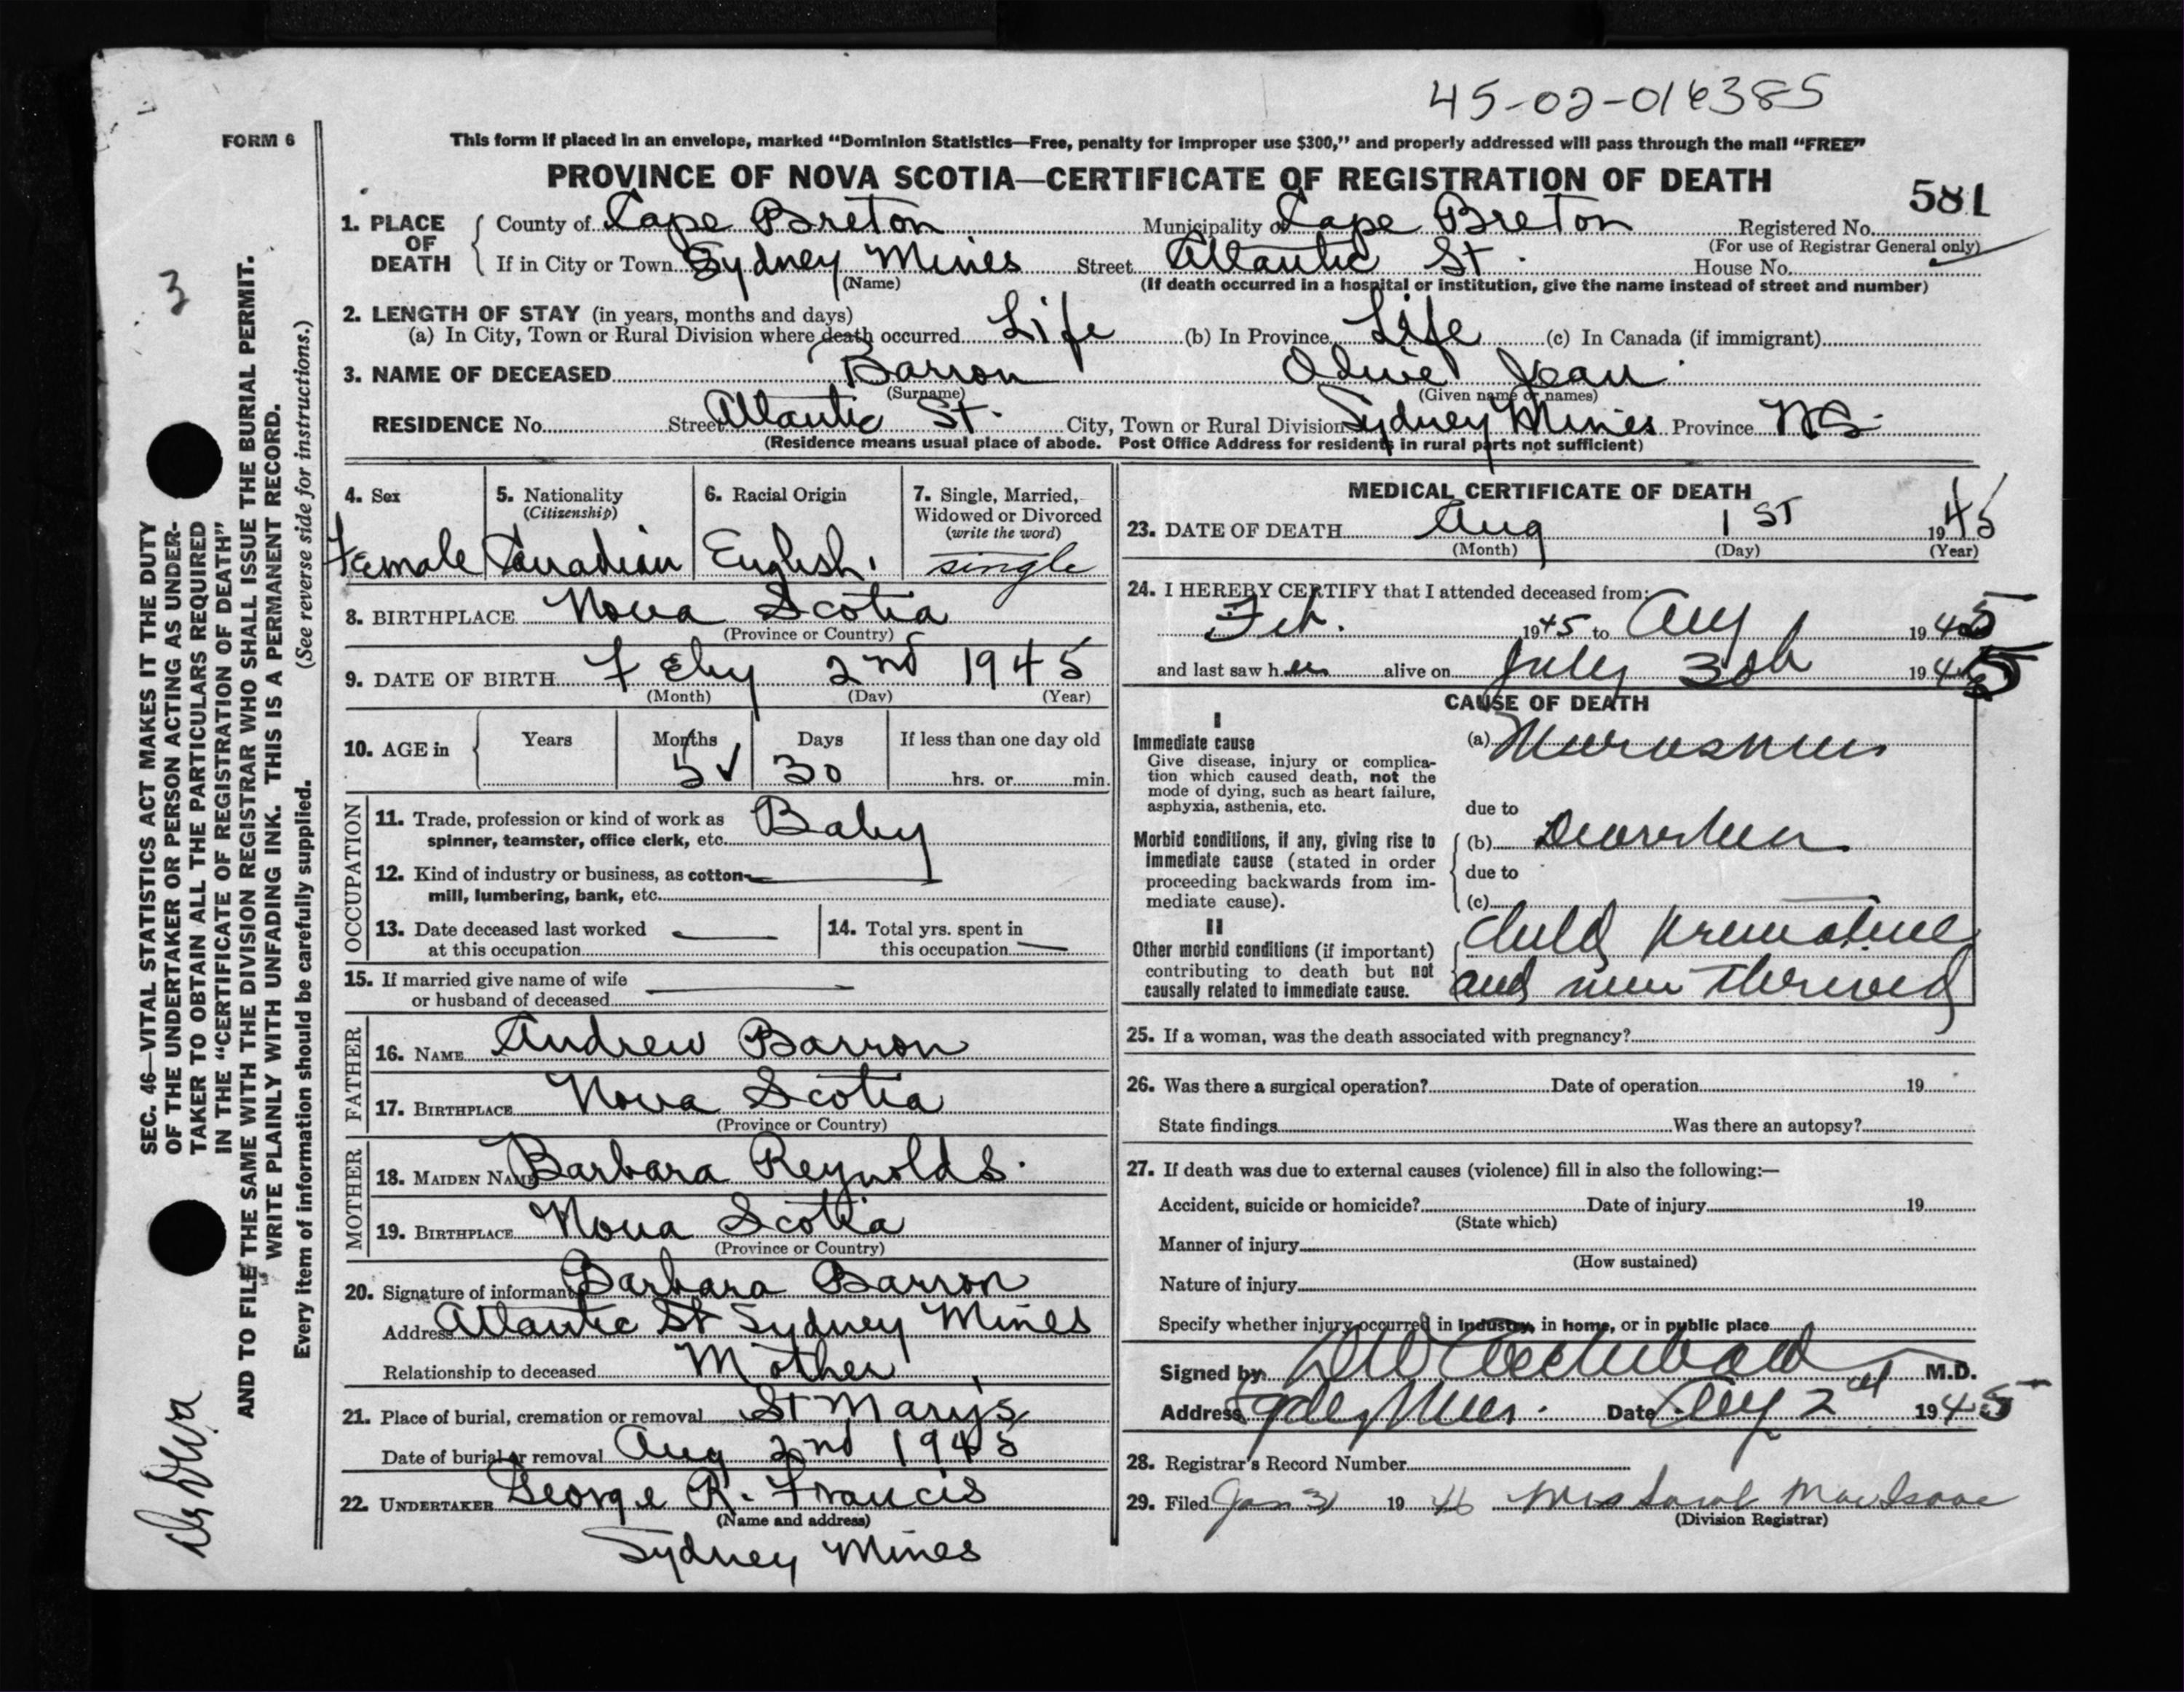 45-02-016385
FORM 6
This form if placed in an envelope, marked "Dominion Statistics—Free, penalty for improper use $300," and properly addressed will pass through the mail "FREE"
PROVINCE OF NOVA SCOTIA—CERTIFICATE OF REGISTRATION OF DEATH
581
1. PLACE OF DEATH County of Cape Breton Municipality of Cape Breton Registered No.
(For use of Registrar General only)
If in City or Town Sydney Mines Street Atlantic St. House No.
(Name) (If death occurred in a hospital or institution, give the name instead of street and number)
2. LENGTH OF STAY (in years, months and days)
(a) In City, Town or Rural Division where death occurred Life (b) In Province Life (c) In Canada (if immigrant)
3. NAME OF DECEASED Barron Olivie Jean
(Surname) (Given name or names)
RESIDENCE No. Street Atlantic St. City, Town or Rural Division Sydney Mines Province NS
(Residence means usual place of abode. Post Office Address for residents in rural parts not sufficient)
4. Sex
5. Nationality
(Citizenship)
6. Racial Origin
7. Single, Married, Widowed or Divorced
(write the word)
Female Canadian English. single
8. BIRTHPLACE Nova Scotia
(Province or Country)
9. DATE OF BIRTH Feby 2nd 1945
(Month) (Day) (Year)
10. AGE in Years Months Days If less than one day old
5 ✓ 30 hrs. or min.
OCCUPATION
11. Trade, profession or kind of work as Baby
spinner, teamster, office clerk, etc.
12. Kind of industry or business, as cotton-
mill, lumbering, bank, etc.
13. Date deceased last worked
at this occupation
14. Total yrs. spent in
this occupation
15. If married give name of wife
or husband of deceased
FATHER
16. NAME Andrew Barron
17. BIRTHPLACE Nova Scotia
(Province or Country)
MOTHER
18. MAIDEN NAME Barbara Reynolds.
19. BIRTHPLACE Nova Scotia
(Province or Country)
20. Signature of informant Barbara Barron
Address Atlantic St Sydney Mines
Relationship to deceased Mother
21. Place of burial, cremation or removal St Mary's
Date of burial or removal Aug 2nd 1945
22. UNDERTAKER George R. Francis
(Name and address)
Sydney Mines
MEDICAL CERTIFICATE OF DEATH
23. DATE OF DEATH Aug 1ST 1945
(Month) (Day) (Year)
24. I HEREBY CERTIFY that I attended deceased from:
Feb. 1945 to Aug 1 1945
and last saw her alive on July 30th 1945
CAUSE OF DEATH
I
Immediate cause
Give disease, injury or complica-
tion which caused death, not the
mode of dying, such as heart failure,
asphyxia, asthenia, etc.
(a) Marasmus
due to
Morbid conditions, if any, giving rise to
immediate cause (stated in order
proceeding backwards from im-
mediate cause).
(b) Diarrhea
due to
(c)
II
Other morbid conditions (if important)
contributing to death but not
causally related to immediate cause.
Child premature
and never thrived
25. If a woman, was the death associated with pregnancy?
26. Was there a surgical operation? Date of operation 19
State findings Was there an autopsy?
27. If death was due to external causes (violence) fill in also the following:—
Accident, suicide or homicide? Date of injury 19
(State which)
Manner of injury
(How sustained)
Nature of injury
Specify whether injury occurred in industry, in home, or in public place
Signed by Archibald M.D.
Address Sydney Mines. Date Aug 2nd 1945
28. Registrar's Record Number
29. Filed Jan 31 1946 Mrs Sarah MacIsaac
(Division Registrar)
3
SEC. 46—VITAL STATISTICS ACT MAKES IT THE DUTY
OF THE UNDERTAKER OR PERSON ACTING AS UNDER-
TAKER TO OBTAIN ALL THE PARTICULARS REQUIRED
IN THE "CERTIFICATE OF REGISTRATION OF DEATH"
AND TO FILE THE SAME WITH THE DIVISION REGISTRAR WHO SHALL ISSUE THE BURIAL PERMIT.
WRITE PLAINLY WITH UNFADING INK. THIS IS A PERMANENT RECORD.
Every item of information should be carefully supplied. (See reverse side for instructions.)